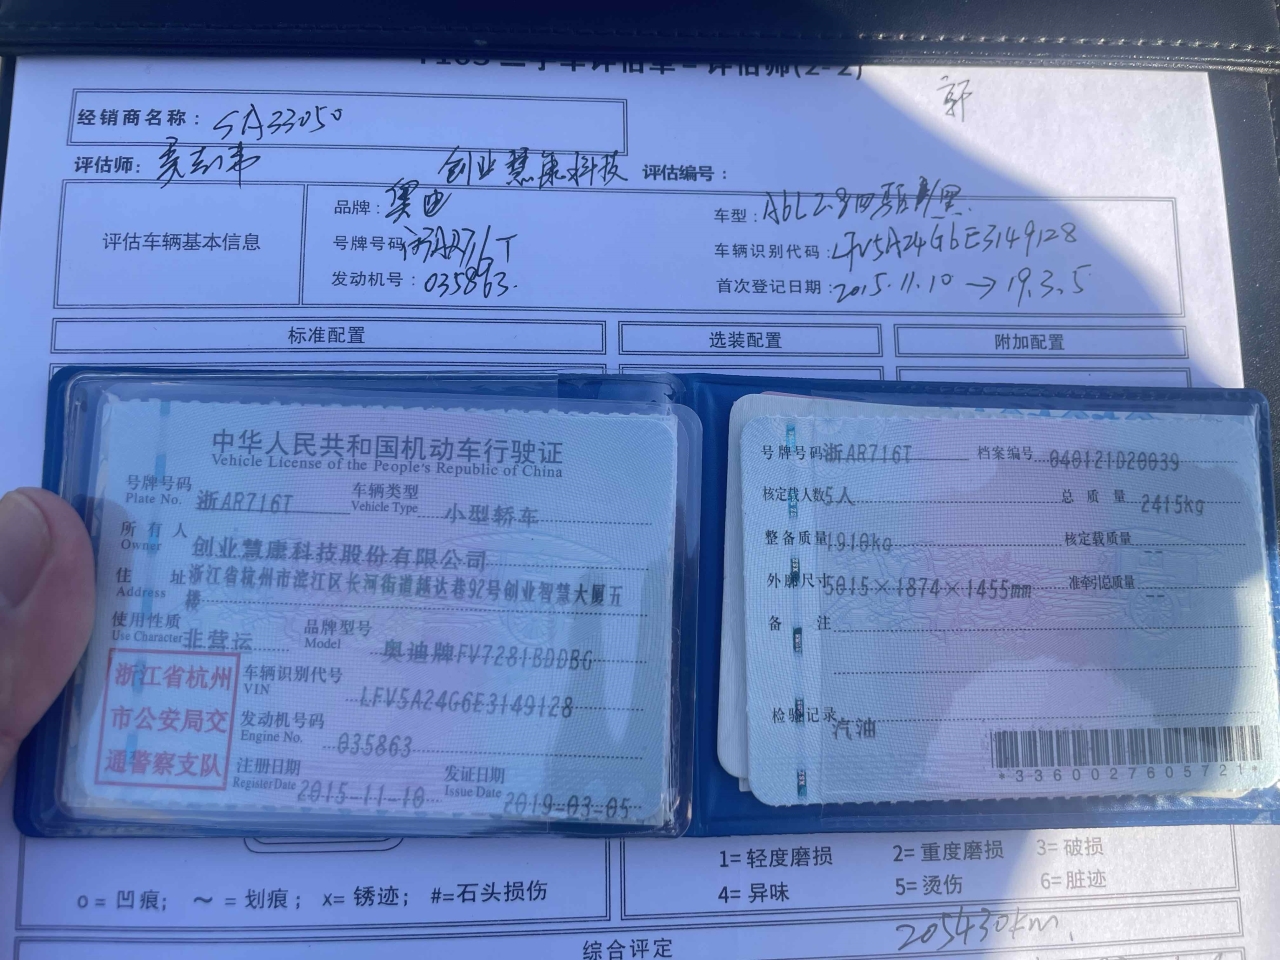 二手车评估单-评估师(2-2)
郭
经销商名称：SA33050
评估师：
创业慧康科技 评估编号：
评估车辆基本信息
品牌：奥迪
车型：A6L2.8四驱 黑
号牌号码 浙AR716T
车辆识别代码：LFV5A24G6E3149128
发动机号：035863.
首次登记日期：2015.11.10→19.3.5
标准配置 选装配置 附加配置
中华人民共和国机动车行驶证
Vehicle License of the People's Republic of China
号牌号码 浙AR716T 车辆类型 小型轿车
Plate No. Vehicle Type
所有人 创业慧康科技股份有限公司
Owner
住址 浙江省杭州市滨江区长河街道越达巷92号创业智慧大厦五
Address 楼
使用性质 非营运 品牌型号 奥迪牌FV7281BDDBG
Use Character Model
浙江省杭州
市公安局交
通警察支队
车辆识别代号 LFV5A24G6E3149128
VIN
发动机号码 035863
Engine No.
注册日期 2015-11-10 发证日期 2019-03-05
Register Date Issue Date
号牌号码 浙AR716T 档案编号 040121D20039
核定载人数 5人 总质量 2415kg
整备质量 1910kg 核定载质量 --
外廓尺寸 5015×1874×1455mm 准牵引总质量 --
备注
检验记录 汽油
*3360027605721*
o=凹痕； ～=划痕； x=锈迹； #=石头损伤
1=轻度磨损 2=重度磨损 3=破损
4=异味 5=烫伤 6=脏迹
综合评定
205430km